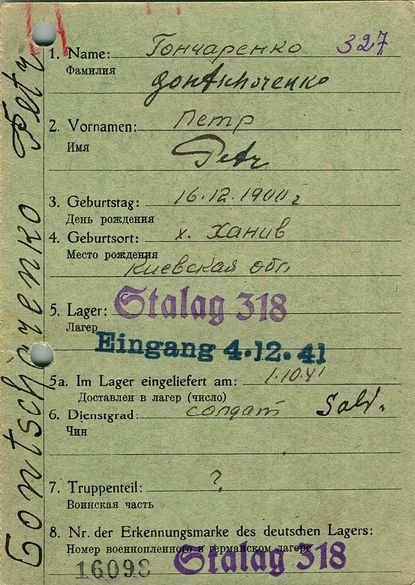 1. Name: Гончаренко 327
Фамилия
Gontscharenko
2. Vornamen: Петр
Имя
Petr
3. Geburtstag: 16.12.1900 г
День рождения
4. Geburtsort: х. Ханив
Место рождения
Киевская обл
5. Lager: Stalag 318
Лагер
Eingang 4.12.41
5a. Im Lager eingeliefert am: 1.10.41
Доставлен в лагер (число)
6. Dienstgrad: солдат Sold.
Чин
7. Truppenteil: ?
Воинская часть
8. Nr. der Erkennungsmarke des deutschen Lagers:
Номер военнопленного в германском лагере
16098 Stalag 318
Gontscharenko Petr